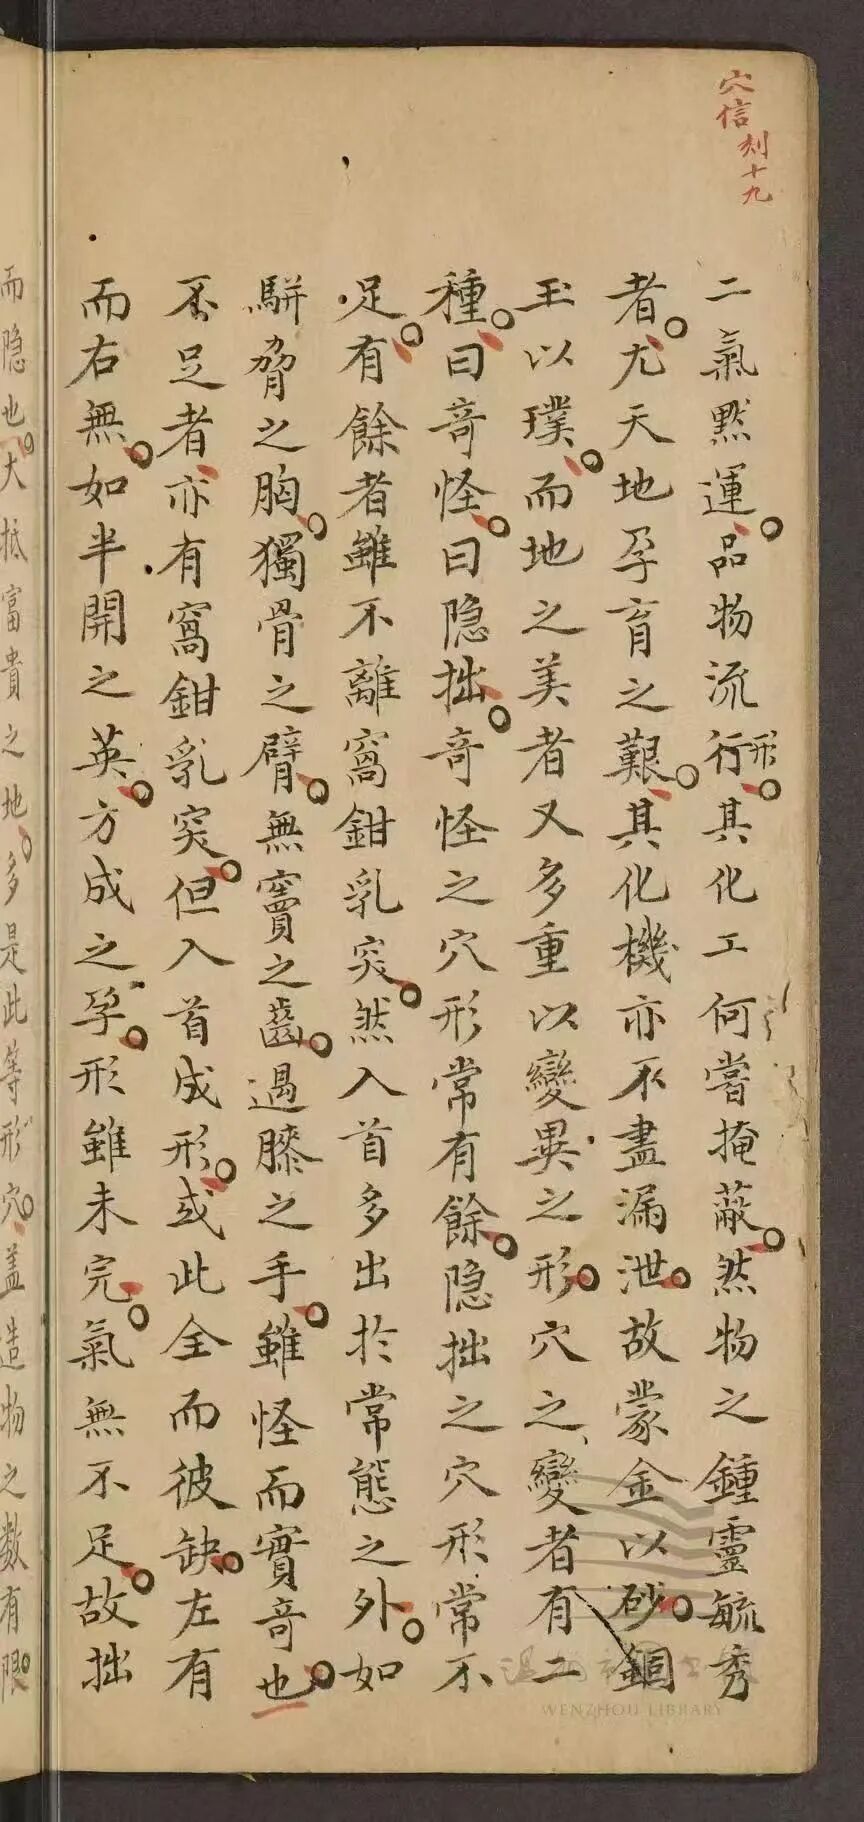 穴信刻十九
二氣黙運品物流行形其化工何嘗掩蔽然物之鍾靈毓秀
者尤天地孕育之艱其化機亦不盡漏泄故蒙金以砂錮
玉以璞而地之美者又多重以變異之形穴之變者有二
種曰竒怪曰隐拙竒怪之穴形常有餘隐拙之穴形常不
足有餘者雖不離窩鉗乳突然入首多出於常態之外如
駢脅之胸獨骨之臂無竇之齒過膝之手雖怪而實竒也
不足者亦有窩鉗乳突但入首成形或此全而彼缺左有
而右無如半開之英方成之孕形雖未完氣無不足故拙
而隐也大抵富貴之地多是此等形穴盖造物之数有限
WENZHOU LIBRARY